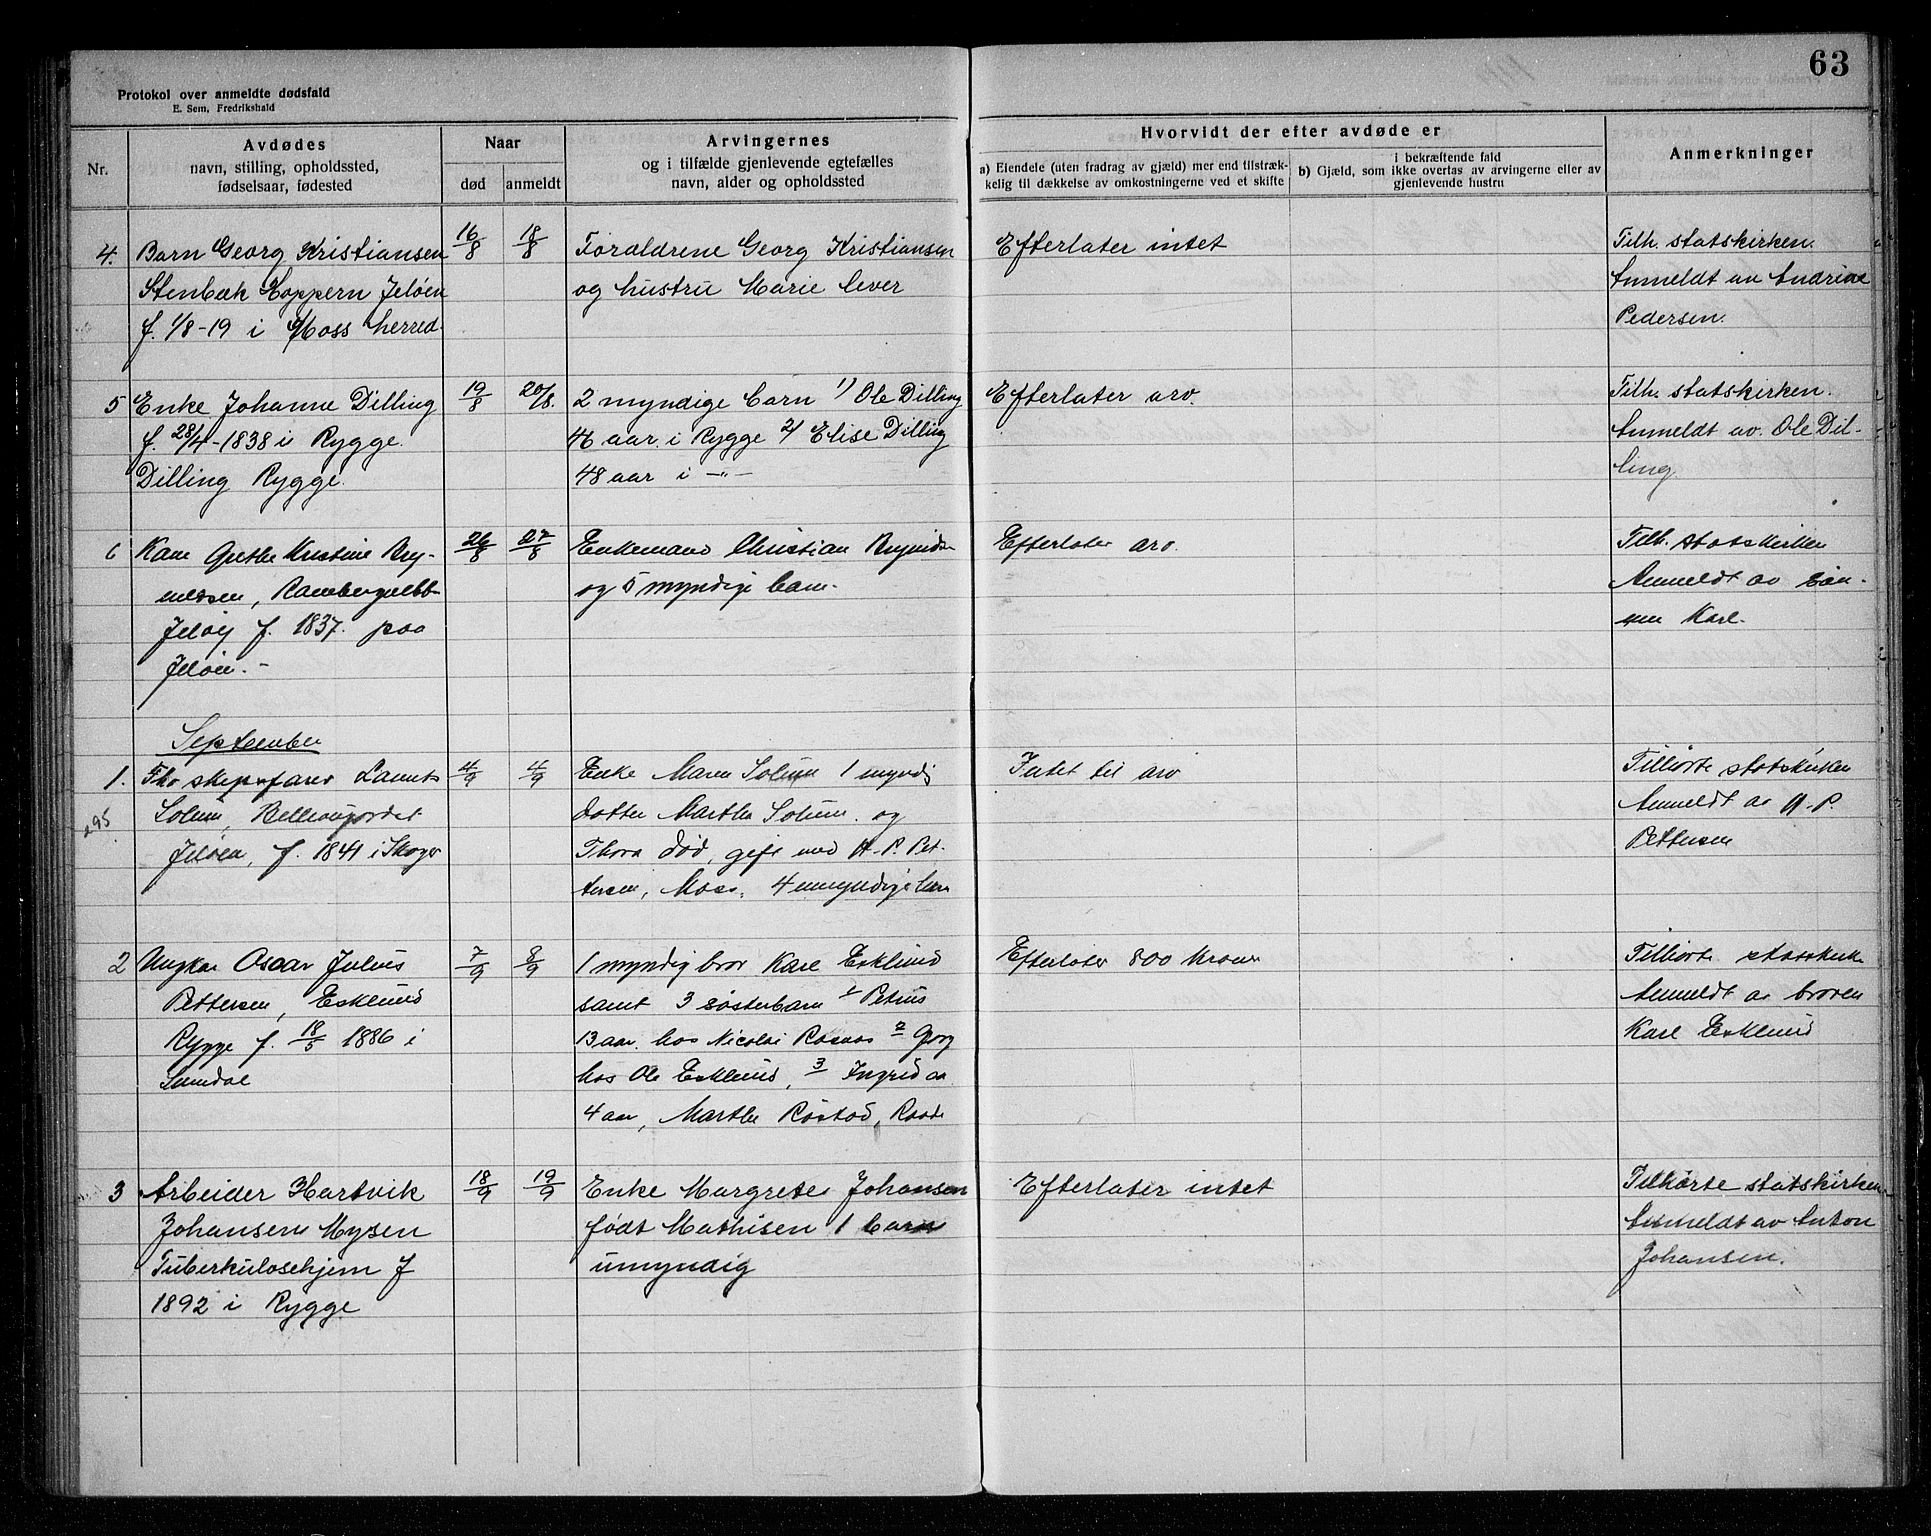 63
Protokol over anmeldte dødsfald
E. Sem, Fredrikshald
Nr.
Avdødes
navn, stilling, opholdssted,
fødselsaar, fødested
Naar
død
anmeldt
Arvingernes
og i tilfælde gjenlevende egtefælles
navn, alder og opholdssted
Hvorvidt der efter avdøde er
a) Eiendele (uten fradrag av gjæld) mer end tilstræk-
kelig til dækkelse av omkostningerne ved et skifte
i bekræftende fald
b) Gjæld, som ikke overtas av arvingerne eller av
gjenlevende hustru
Anmerkninger
4. Barn Georg Kristiansen 16/8 18/8 Forældrene Georg Kristiansen Efterlater intet Tilh. statskirken.
Stenbæk Jeløen og hustru Marie lever Anmeldt av Andrine
f. 1/8-19 i Moss herred. Pedersen.
5 Enke Johanne Dilling 19/8 20/8. 2 myndige barn 1) Ole Dilling Efterlater arv. Tilh. statskirken.
f. 28/4-1838 i Rygge. 46 aar i Rygge 2) Elise Dilling Anmeldt av. Ole Dil-
Dilling Rygge. 48 aar i -"- ling.
6 Kone Grethe Kristine 26/8 27/8 Enkemand Christian Efterlater arv. Tilh. statskirken
Jeløy f. 1837. paa og 5 myndige barn. Anmeldt av søn-
Jeløen.- nen Karl.
September
1. Fhv skipsfører Laurits 4/9 4/9 Enke Maren Solum 1 myndig Intet til arv Tilhørte statskirken
295 Solum, datter Marthe Solum. og Anmeldt av H. P.
Jeløen, f. 1841 i Skoger Thora død, gift med H. P. Pet- Pettersen
tersen, Moss. 4 umyndige barn
2 Ungkar Oscar Julius 7/9 8/9 1 myndig bror Karl Esklund Efterlater 800 kroner Tilhørte statskirke
Pettersen, Esklund samt 3 søsterbarn 1 Petrus Anmeldt av broren
Rygge f. 18/5 1886 i 13 aar. hos Nicolai 2 Georg Karl Esklund
hos Ole Esklund, 3 Ingrid
4 aar, Marthe Røstad, Raade
3 Arbeider Hartvik 18/9 19/9 Enke Margrete Johansen Efterlater intet Tilhørte statskirken
Johansen Mysen født Mathisen 1 barn Anmeldt av Anton
Tuberkulosehjem f umyndig Johansen.
1892 i Rygge